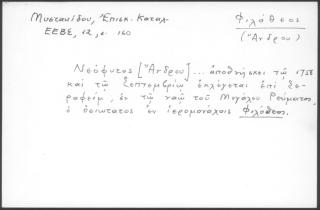 Μυστακίδου, Ἐπισκ. Καταλ.
ΕΕΒΣ, 12, σ. 160
Φιλόθεος
(Ἄνδρου)
Νεόφυτος [Ἄνδρου] ... ἀποθνήσκει τῷ 1758
καὶ τῷ Σεπτεμβρίῳ ἐκλέγεται ἐπὶ Σε-
ραφείμ, ἐν τῷ ναῷ τοῦ Μεγάλου Ρεύματος,
ὁ ὁσιώτατος ἐν ἱερομονάχοις Φιλόθεος.